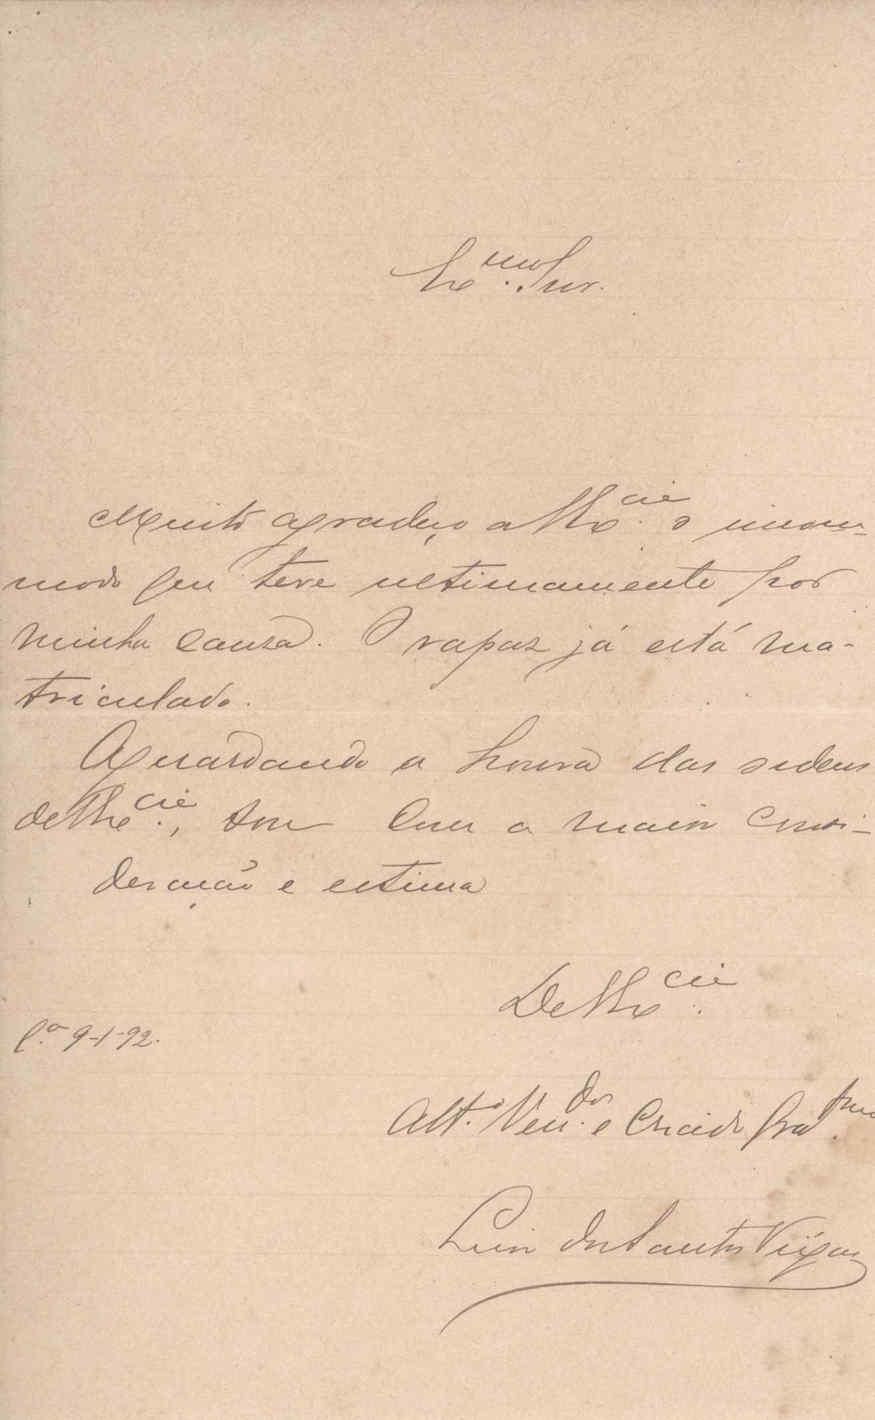 Exmo. Snr.
Muito agradeço a V. Excia. o incom-
modo que teve ultimamente por
minha causa. O rapaz já está ma-
triculado.
Aguardando a honra das ordens
de V. Excia., sou com a maior consi-
deração e estima
De V. Excia.
9-1-92.
Att.º Ven.dor e Criado
Luiz dos Santos Viégas